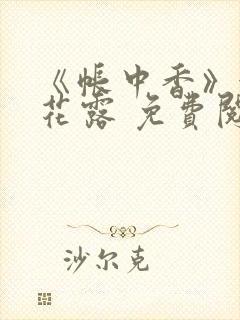 《帐中香》
花露 免費閱
沙尔克